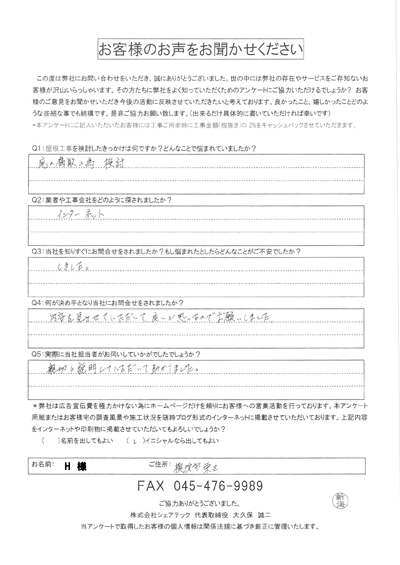 お客様のお声をお聞かせください
この度は弊社にお問い合わせをいただき、誠にありがとうございました。世の中には弊社の存在やサービスをご存知ないお
客様が沢山いらっしゃいます。その方たちに弊社をよく知っていただくためのアンケートにご協力いただけるでしょうか? お客
様のご意見をお聞かせいただき今後の活動に反映させていただきたいと考えております。良かったこと、嬉しかったことどのよ
うな些細な事でも結構です。是非ご協力お願い致します。(出来るだけ具体的に書いていただければ幸いです)
*本アンケートにご記入いただいたお客様には工事ご用命時に工事金額(税抜き)の 2%をキャッシュバックさせていただきます。
Q1:屋根工事を検討したきっかけは何ですか?どんなことで悩まれていましたか?
腐敗の為 検討
Q2:業者や工事会社をどのように探されましたか?
インターネット
Q3:当社を知りすぐにお問合せをされましたか?もし悩まれたとしたらどんなことがご不安でしたか?
しました。
Q4:何が決め手となり当社にお問合せをされましたか?
内容を見させていただいて良いと思ったのでお願いしました
Q5:実際に当社担当者がお伺いしていかがでしたでしょうか?
親切に説明していただいて助かりました。
*弊社は広告宣伝費を極力かけない為にホームページだけを頼りにお客様への営業活動を行っております。本アンケート
用紙またはお客様宅の調査風景や施工状況を随時ブログ形式のインターネットに掲載させていただいております。上記内容
をインターネットや印刷物に掲載させていただいてもよろしいでしょうか?
( )名前を出してもよい ( レ )イニシャルなら出してもよい
お名前: H 様 ご住所: 横浜市栄区
FAX 045-476-9989
ご協力ありがとうございました。
株式会社シェアテック 代表取締役 大久保 誠二
当アンケートで取得したお客様の個人情報は関係法規に基づき厳正に管理いたします。